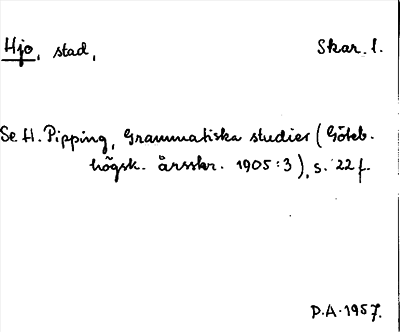 Hjo, stad, Skar. l.
Se H. Pipping, Grammatiska studier (Göteb.
högsk. årsskr. 1905:3), s. 22 f.
P.A. 1957.